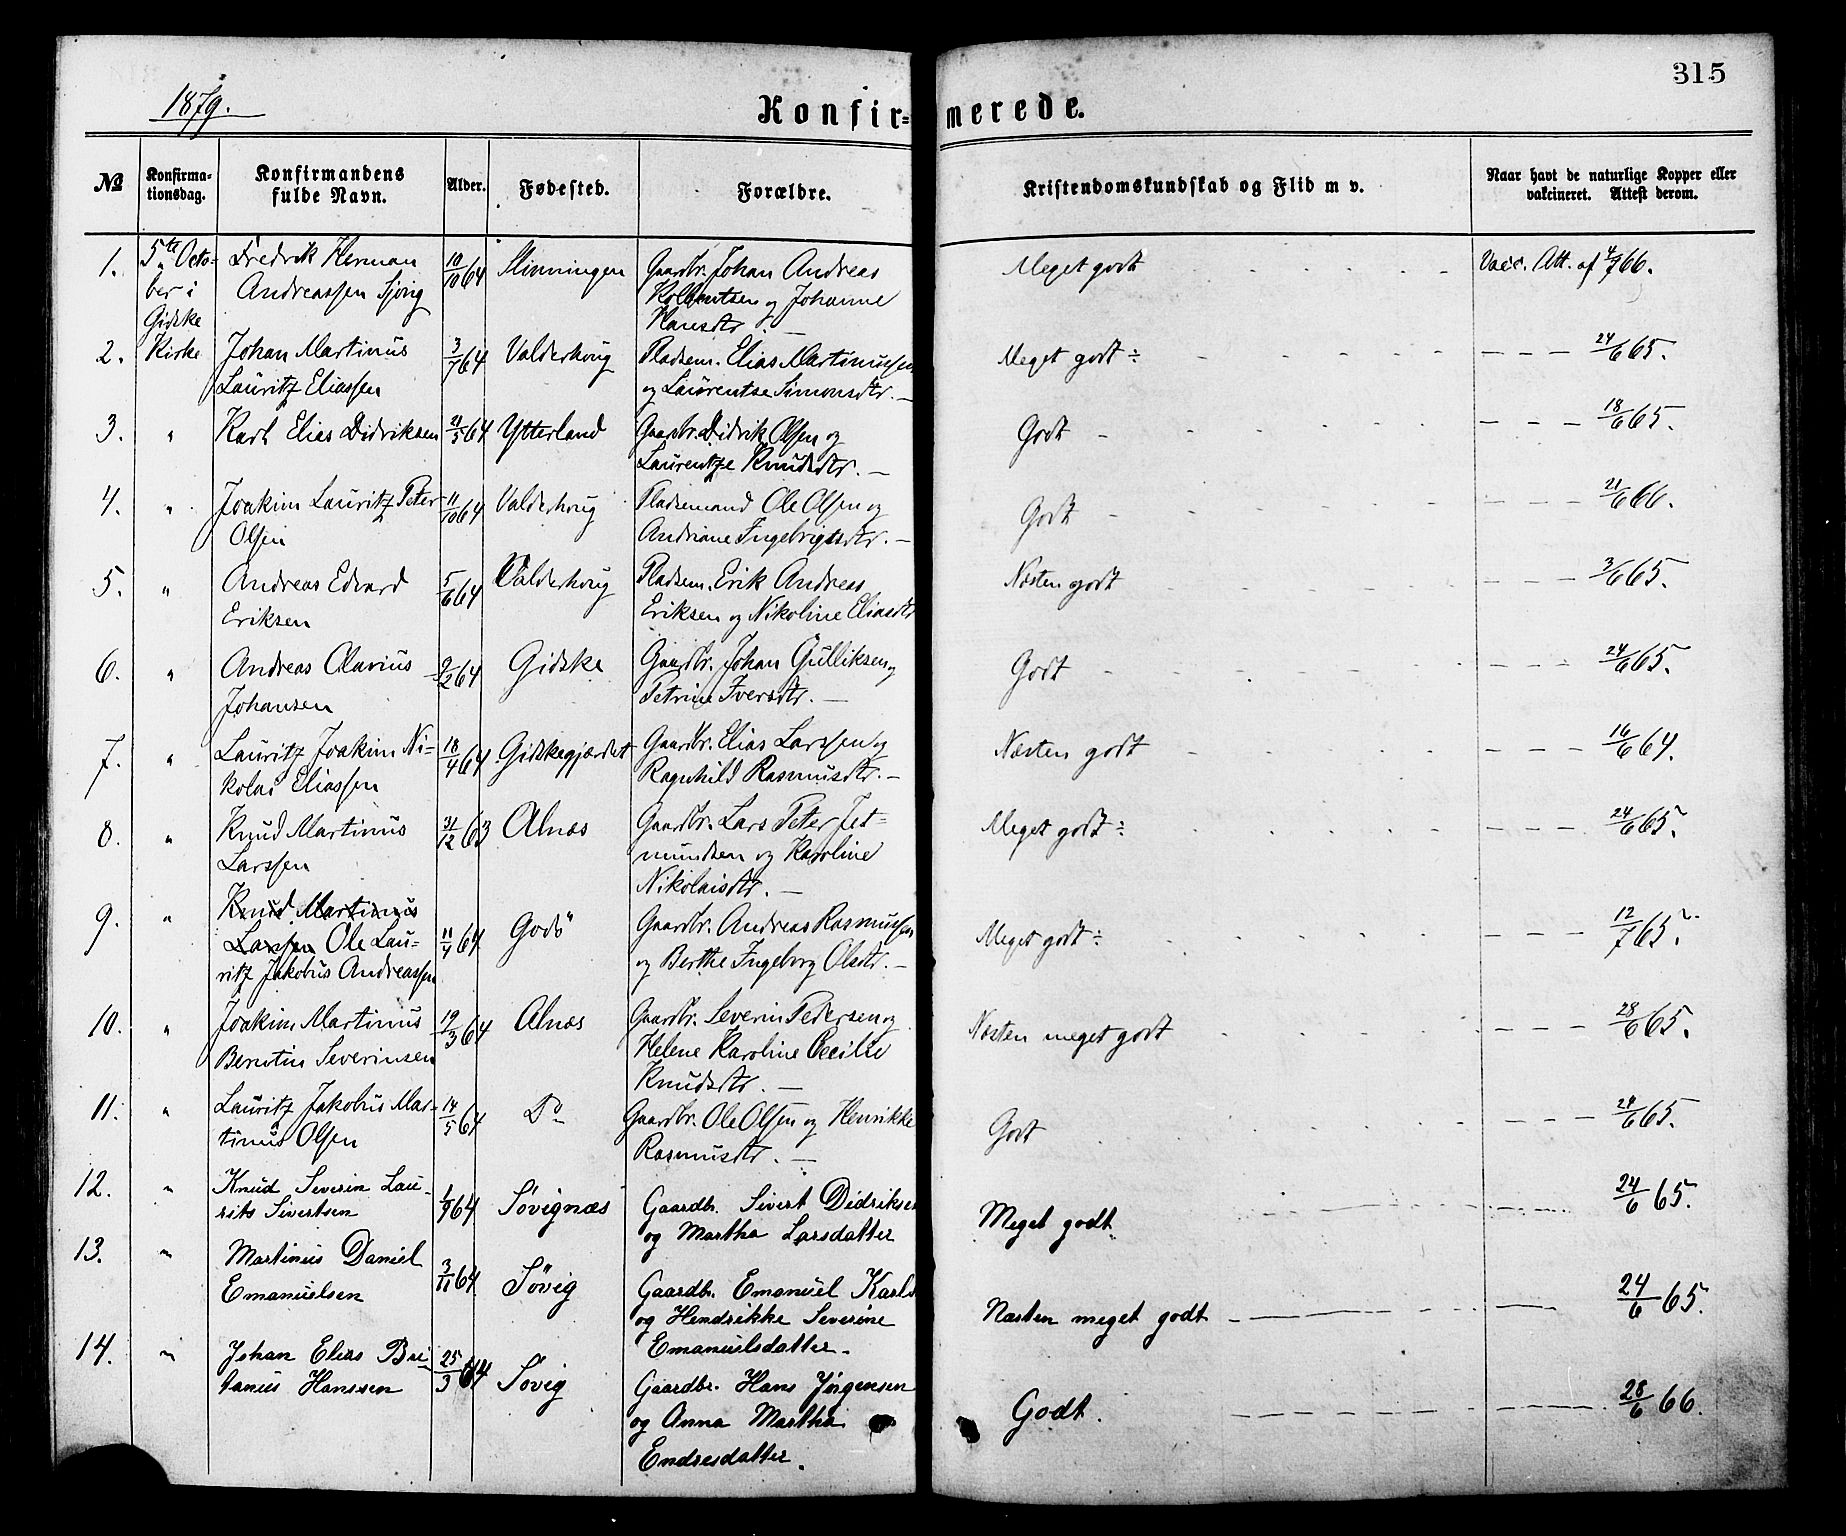 315
1879.
Konfir=merede.
No
Konfirma-
tionsdag.
Konfirmandens
fulde Navn.
Alder.
Fødested.
Forældre.
Kristendomskundskab og Flid m v.
Naar havt de naturlige Kopper eller
vakcineret. Attest derom.
1. 5te Octo- Fredrik Herman 10/10 64 Gaardbr. Johan Andreas Meget godt Vacc. Att. af 4/7 66.
ber i Andreassen
Gidske og Johanne
Hansdtr.
2. Kirke Johan Martinus 3/7 64 Valderhoug Pladsm. Elias Martinussen Meget godt ÷ - - - 24/6 65.
Lauritz Eliassen og Laurentse Simonsdtr. —
3. " Karl Elias Didriksen 21/5 64 Ytterland Gaardbr. Didrik Olsen og Godt - - - 18/6 65.
Laurentze Knudsdtr. —
4. " Joakim Lauritz Peter 11/10 64 Valderhoug Pladsemand Ole Olsen og Godt - - - 21/6 66.
Olsen Andriane Ingebrigtsdtr. —
5. " Andreas Edvard 5/6 64 Valderhoug Pladsm. Erik Andreas Næsten godt - - - 3/6 65.
Eriksen Eriksen og Nikoline Eliasdtr
6. " Andreas Olavius 9/2 64 Gidske Gaardbr. Johan Gulliksen og Godt - - - 24/6 65.
Johansen Petrine Iversdtr. —
7. " Lauritz Joakim Ni= 18/4 64 Gidskegjærdet Gaardbr. Elias Larssen og Næsten godt - - - 16/6 64.
kolai Eliassen Ragnhild Rasmusdtr. —
8. " Knud Martinus 31/12 63 Alnæs Gaardbr. Lars Peter Jet= Meget godt ÷ - - - 24/6 65.
Larssen mundsen og Karoline
Nikolaisdtr. —
9. " Knud Martinus
Larssen Ole Lau= 11/4 64 Godö Gaardbr. Andreas Rasmussen Meget godt ÷ - - - 12/7 65.
ritz Jakobus Andreassen og Berthe Ingeborg Olsdtr. —
10. " Joakim Martinus 19/3 64 Alnæs Gaardbr. Severin Pedersen og Næsten meget godt - - - 28/6 65.
Berntin Severinsen Helene Karoline Cecilie
Knudsdtr. —
11. " Lauritz Jakobus Mar- 14/5 64 Do Gaardbr. Ole Olsen og Henrikke Godt - - - 24/6 65.
tinus Olsen Rasmusdtr. —
12. " Knud Severin Lau- 64 Søvignæs Gaardbr. Sivert Didriksen Meget godt. 24/6 65.
rits Sivertsen og Martha Larsdatter
13. " Martinus Daniel 3/11 64 Søvig Gaardbr. Emanuel Næsten meget godt 24/6 65.
Emanuelsen og Hendrikke Severine
Emanuelsdatter.
14. " Johan Elias 25/3 64 Søvig Gaardbr. Hans Jørgensen Godt. 28/6 66.
Hanssen og Anna Martha
Endresdatter.